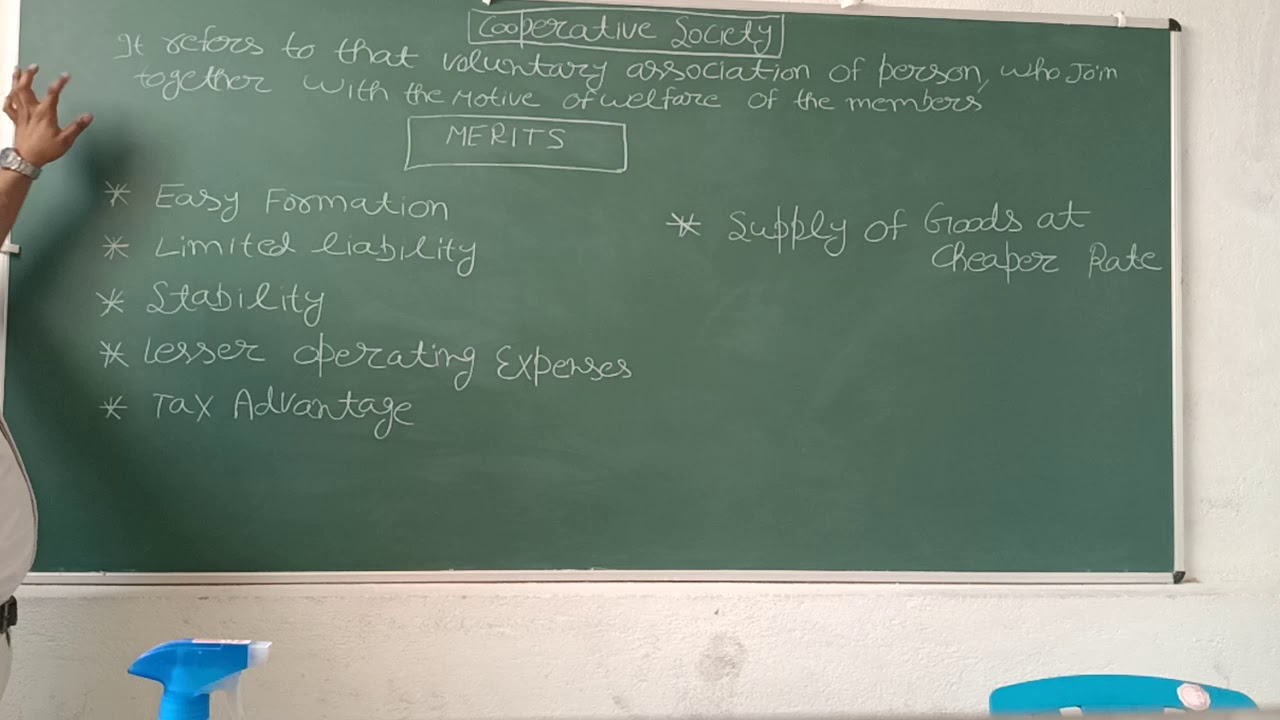 Cooperative Society
It refers to that voluntary association of person, who Join
together with the Motive of welfare of the members
MERITS
* Easy Formation
* Limited liability
* Stability
* Lesser operating Expenses
* Tax Advantage
* Supply of Goods at
Cheaper Rate